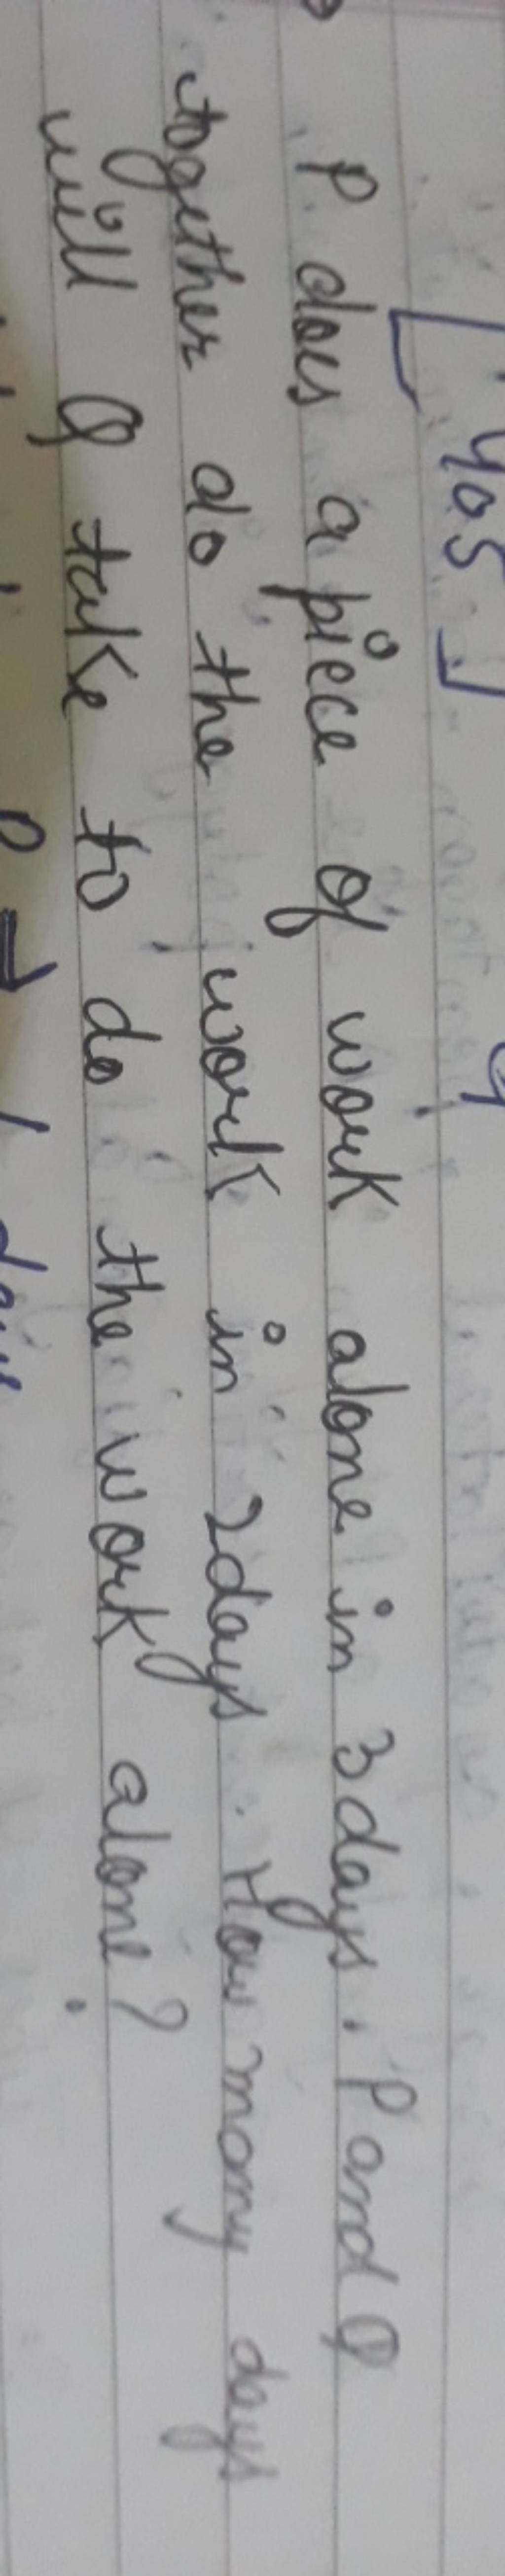 [ 405 ]
P does a piece of work alone in 3 days. P and Q
together do the work in 2 days. How many days
will Q take to do the work alone?
P ⇒